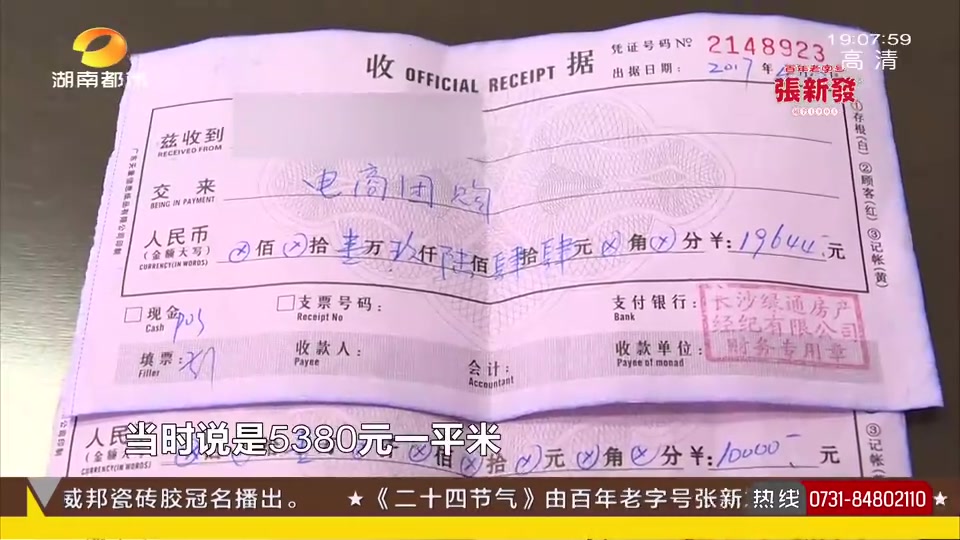 湖南都市
19:07:59
高清
百年老字号
張新發
收 OFFICIAL RECEIPT 据
凭证号码 No 2148923
出据日期: 2017 年
兹收到
RECEIVED FROM
交 来
BEING IN PAYMENT
电商团购
人民币
(金额大写)
CURRENCY(IN WORDS)
ⓧ佰ⓧ拾壹万玖仟陆佰肆拾肆元ⓧ角ⓧ分 ¥: 19644 元
现金
Cash
pos
支票号码:
Receipt No
支付银行:
Bank
填票:
Filler
收款人:
Payee
会计:
Accountant
收款单位:
Payee of monad
长沙绿通房产
经纪有限公司
财务专用章
①存根(白) ②顾客(红) ③记帐(黄)
人民
(金额大写)
CURRENCY(IN WORDS)
ⓧ佰ⓧ拾ⓧ元ⓧ角ⓧ分 ¥: 10000 元
③记帐
当时说是5380元一平米
威邦瓷砖胶冠名播出。 ★《二十四节气》由百年老字号张新
热线 0731-84802110